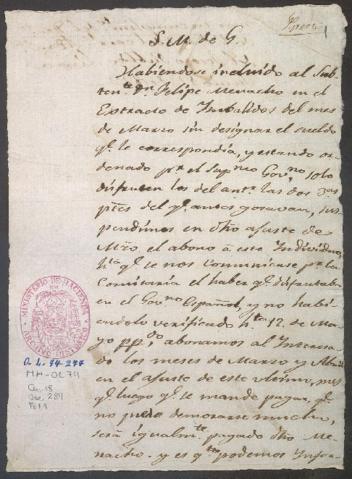 S. M. de G.
Habiendose incluido al Sub-
ten.te Dn. Felipe Menacho en el
Extracto de Imbalidos del mes
de Marzo sin designar el sueldo
q.e le correspondia, y estando or-
denado p.r el Sup.mo Gov.no, solo
disfruten los del ant.r las dos 3.as
p.tes del q.e antes gosavan, sus-
pendimos en dho ajuste de
Mzo el abono á este Individuo,
h.ta q.e se nos comunicase p.r la
Comisaria el haber q.e disfrutaba
en el Gov.no Español, y no habi-
endolo verificado h.ta 12, de Ma-
yo pp.do, abonamos al Interesa-
do los meses de Marzo y Abril
en el ajuste de este ultimo, pues
q.e luego q.e se mande pagar, q.e
no puede demorarse mucho,
será igualm.te pagado dho Me-
nacho. y es q.to podemos Infor-
MINISTERIO DE HACIENDA
O.L. 94-274
MH-OL 94
Ca. 18
Doc. 289
Fs. 1